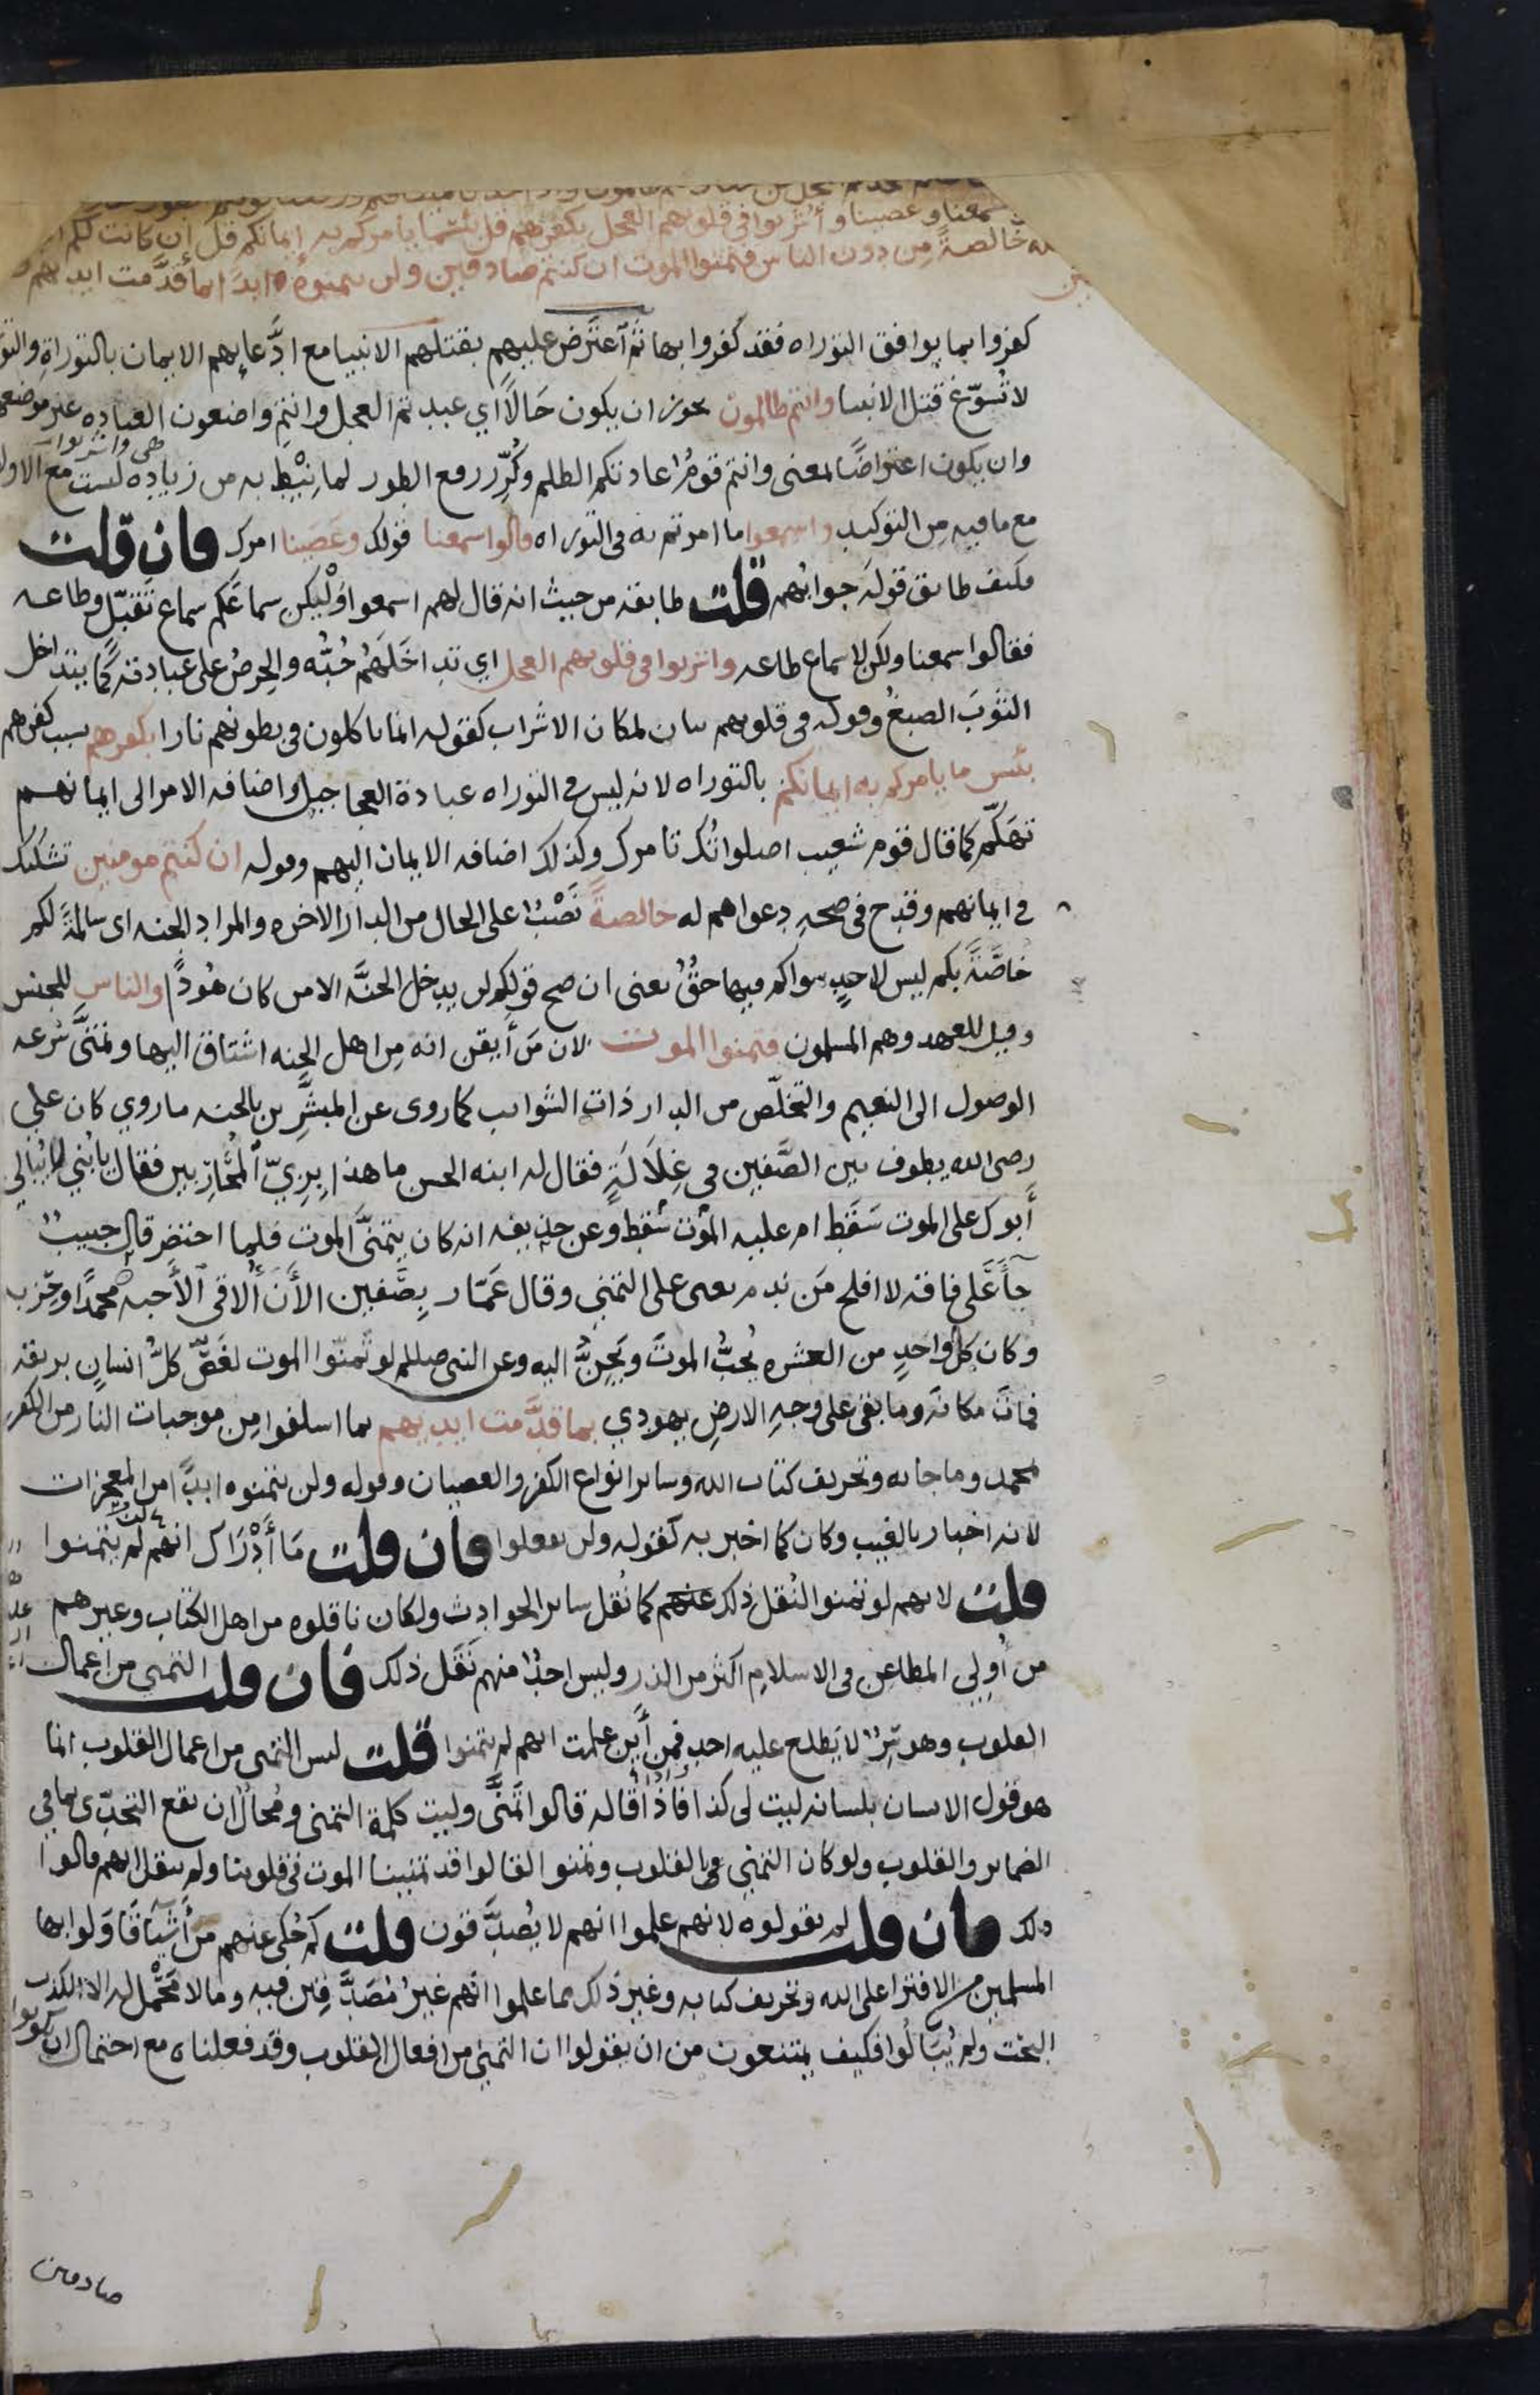 سمعنا وعصينا وأشربوا في قلوبهم العجل بكفرهم قل بئسما يأمركم به إيمانكم قل إن كانت لكم
خالصةً مِن دون الناس فتمنوا الموت ان كنتم صادقين ولن يتمنوه ابدًا بما قدَّمت ايديهم
كفروا بما يوافق التوراه فقد كفروا بها ثم آعتَرض عليهم بقتلهم الانبيا مع ادَّعايهم الايمان بالتوراةِ والتو
لا تُسَوّغ قتل الانبيا وانتم ظالمون يجوز ان يكون حَالاً اي عبدتم العجل وانتم واضعون العباده غير موضعها
وان يكون اعتراضًا بمعنى وانتم قومٌ عادتكم الظلم وكُرِّر رفع الطور لما نِيْط به من زياده ليست مع الاول
هى واشربوا
مع ما فيه مِن التوكيد واسمعوا ما امرتم به في التوراه قالوا سمعنا قولك وعَصَينا امرك فان قلت
فكيف طابق قولَه جوابُهم قلت طابقه من حيث انه قال لهم اسمعوا وَلْيكن سماعُكم سماع تَقبّل وطاعه
فقالوا سمعنا ولكن لا سماع طاعه واشربوا في قلوبهم العجل اي تداخَلَهُم حُبُّه والحِرصُ على عبادته كما يتداخل
الثوبَ الصبغُ وقوله في قلوبهم بيان لمكان الاشراب كقوله انما ياكلون في بطونهم نارا بكفرهم بسبب كفرهم
بئس ما يامركم به ايمانكم بالتوراه لانه ليس في التوراه عبادة العجاجيل واضافه الامر الى ايمانهم
تهكّم كما قال قوم شعيب اصلواتُك تامرك وكذلك اضافه الايمان اليهم وقوله ان كنتم مومنين تشكيك
في ايمانهم وقدح في صحهِ دعواهم له خالصةً نَصْبٌ على الحال من الدار الاخره والمراد الجنه اى سالمةً لكم
خاصَّةً بكم ليس لاحدٍ سواكم فيها حقٌّ يعنى ان صح قولكم لن يدخل الجنَّه الا من كان هُودًا والناسِ للجنس
وقيل للعهد وهم المسلمون فتمنوا الموت لان مَن أَيقن انه مِن اهل الجنه اشتاق اليها وتمنَّى سُرعه
الوصول الى النعيم والتخلّص من الدار ذات الشوايب كما روى عن المبشَّرين بالجنه ما روي كان علي
رضى الله يطوف بين الصَّفين في غِلاَلَةٍ فقال له ابنه الحسن ما هذا بِزِيّ ٱلمُحاَرِبين فقال يا بُني لا يُبالي
أَبوك على الموت سَقَط ام عليه الموت سقط وعن حذيفه انه كان يتمنَّى الموت فلما احتضِر قال حبيبٌ
جآءَ على فاقه لا افلح مَن ندم يعنى على التمني وقال عَمّار بِصَّفين الأن أُلاقى ٱلأَحبه محمدًا وحِزبه
وكان كل واحدٍ من العشره يُحبُّ الموتَ ويَحِنُّ اليه وعن النبى صللم لو تَمنّوا الموت لغَصَّ كلُّ انسانٍ بريقه
فماتَ مكانَه وما بقى على وجهِ الارض يهودي بما قدَّمت ايديهم بما اسلفوا مِن موجبات النار من الكفر
بمحمد وما جا به وتحريف كتاب الله وساير انواع الكفر والعصيان وقوله ولن يتمنوه ابدًا من المعجزات
لانه اخبار بالغيب وكان كما اخبر به كقوله ولن تفعلوا فان قلت مَا أَدْرَاك انهم لم يتمنوا
قلت لانهم لو تمنوا لنُقل ذلك عنهم كما نُقل ساير الحوادث ولكان ناقلوه من اهل الكتاب وغيرهم
من أُولي المطاعن في الاسلام اكثر من الذر وليس احدٌ منهم نَقَل ذلك فان قلت التمنى من اعمال
القلوب وهو سِرٌّ لا يَطلع عليه احد فمِن أَين علمت انهم لم يتمنوا قلت ليس التمنى من اعمال القلوب انما
هو قول الانسان بلسانه ليت لى كذا فاذا قاله قالوا تَمنَّى وليت كلمة التمنى ومُحالٌ ان يقع التحدّى بما في
الضماير والقلوب ولو كان التمنِّي بالقلوب وتمنوا لقالوا قد تمنينا الموت في قلوبنا ولم ينقل انهم قالوا
ذلك فان قلت لم يقولوه لانهم علموا انهم لا يُصدَّقون قلت كم حُكى عنهم من أَشيآء قاوَلوا بها
المسلمين من الافترا على الله وتحريف كتابه وغير ذلك مما علموا انهم غيرُ مُصَدَّقين فيه وما لا مَحْمل له الا الكذب
البحت ولم يُبَالُوا فكيف يمتنعون من ان يقولوا ان التمني من افعال القلوب وقد فعلناه مع احتمال ان يكونوا
صادقين